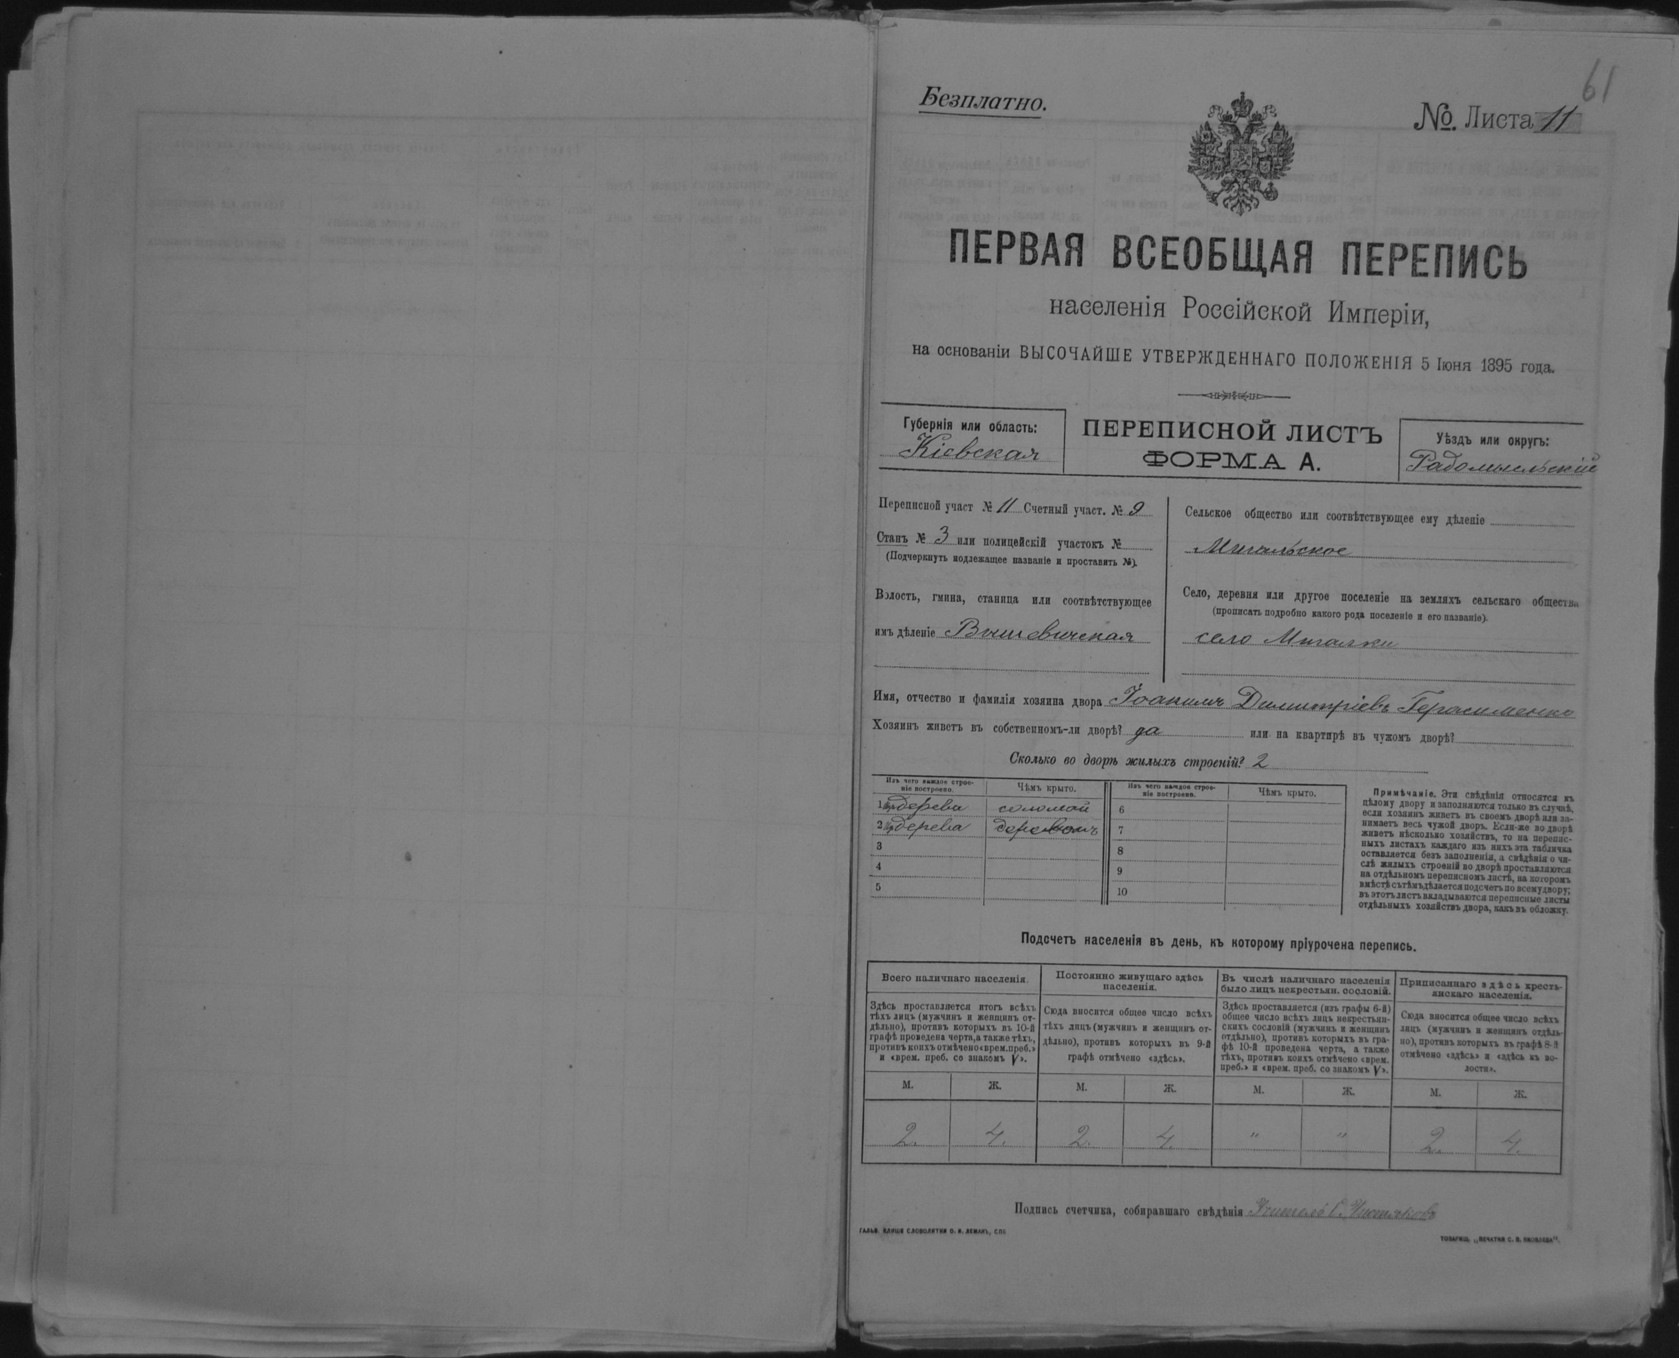 61
Безплатно.
№. Листа 11
ПЕРВАЯ ВСЕОБЩАЯ ПЕРЕПИСЬ
населенія Россійской Имперіи,
на основаніи ВЫСОЧАЙШЕ УТВЕРЖДЕННАГО ПОЛОЖЕНІЯ 5 Іюня 1895 года.
Губернія или область:
Кіевская
ПЕРЕПИСНОЙ ЛИСТЪ
ФОРМА А.
Уѣздъ или округъ:
Радомысльскій
Переписной участ № 11 Счетный участ. № 9
Станъ № 3 или полицейскій участокъ №
(Подчеркнуть подлежащее названіе и проставить №).
Волость, гмина, станица или соотвѣтствующее
имъ дѣленіе Вышевичская
Сельское общество или соотвѣтствующее ему дѣленіе
Мигальское
Село, деревня или другое поселеніе на земляхъ сельскаго общества
(прописать подробно какого рода поселеніе и его названіе).
село Мигалки
Имя, отчество и фамилія хозяина двора Іоакимъ Димитріевъ Герасименко
Хозяинъ живетъ въ собственномъ-ли дворѣ? да или на квартирѣ въ чужомъ дворѣ?
Сколько во дворѣ жилыхъ строеній? 2
Изъ чего каждое строе-
ніе построено.
Чѣмъ крыто.
Изъ чего каждое строе-
ніе построено.
Чѣмъ крыто.
1 дерева соломой
2 дерева деревомъ
3
4
5
6
7
8
9
10
Примѣчаніе. Эти свѣдѣнія относятся къ
цѣлому двору и заполняются только въ случаѣ,
если хозяинъ живетъ въ своемъ дворѣ или за-
нимаетъ весь чужой дворъ. Если-же во дворѣ
живетъ нѣсколько хозяйствъ, то на перепис-
ныхъ листахъ каждаго изъ нихъ эта табличка
оставляется безъ заполненія, а свѣдѣнія о чи-
слѣ жилыхъ строеній во дворѣ проставляются
на отдѣльномъ переписномъ листѣ, на которомъ
вмѣстѣ съ тѣмъ дѣлается подсчетъ по всему двору;
въ этотъ листъ вкладываются переписные листы
отдѣльныхъ хозяйствъ двора, какъ въ обложку.
Подсчетъ населенія въ день, къ которому пріурочена перепись.
Всего наличнаго населенія.
Здѣсь проставляется итогъ всѣхъ
тѣхъ лицъ (мужчинъ и женщинъ от-
дѣльно), противъ которыхъ въ 10-й
графѣ проведена черта, а также тѣхъ,
противъ коихъ отмѣчено «врем. преб.»
и «врем. преб. со знакомъ V».
Постоянно живущаго здѣсь
населенія.
Сюда вносится общее число всѣхъ
тѣхъ лицъ (мужчинъ и женщинъ от-
дѣльно), противъ которыхъ въ 9-й
графѣ отмѣчено «здѣсь».
Въ числѣ наличнаго населенія
было лицъ некрестьян. сословій.
Здѣсь проставляется (изъ графы 6-й)
общее число всѣхъ лицъ некрестьян-
скихъ сословій (мужчинъ и женщинъ
отдѣльно), противъ которыхъ въ гра-
фѣ 10-й проведена черта, а также
тѣхъ, противъ коихъ отмѣчено «врем.
преб.» и «врем. преб. со знакомъ V».
Приписаннаго здѣсь кресть-
янскаго населенія.
Сюда вносится общее число всѣхъ
лицъ (мужчинъ и женщинъ отдѣль-
но), противъ которыхъ въ графѣ 8-й
отмѣчено «здѣсь» и «здѣсь въ во-
лости».
М. Ж. М. Ж. М. Ж. М. Ж.
2. 4. 2. 4. " " 2. 4.
Подпись счетчика, собиравшаго свѣдѣнія Учитель
ГАЛЬВ. КЛИШЕ СЛОВОЛИТНИ О. И. ЛЕМАНЪ, СПБ
ТОВАРИЩ. „ПЕЧАТНЯ С. П. ЯКОВЛЕВА".